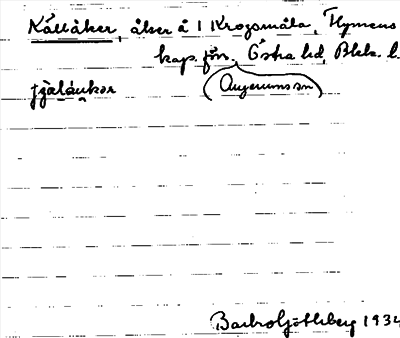 Källåker, åker å 1 Krogsmåla, Flymens
kap. förs. Östra hd, Blek. l.
(Augerums sn)
Barbro Ljöthberg 1934